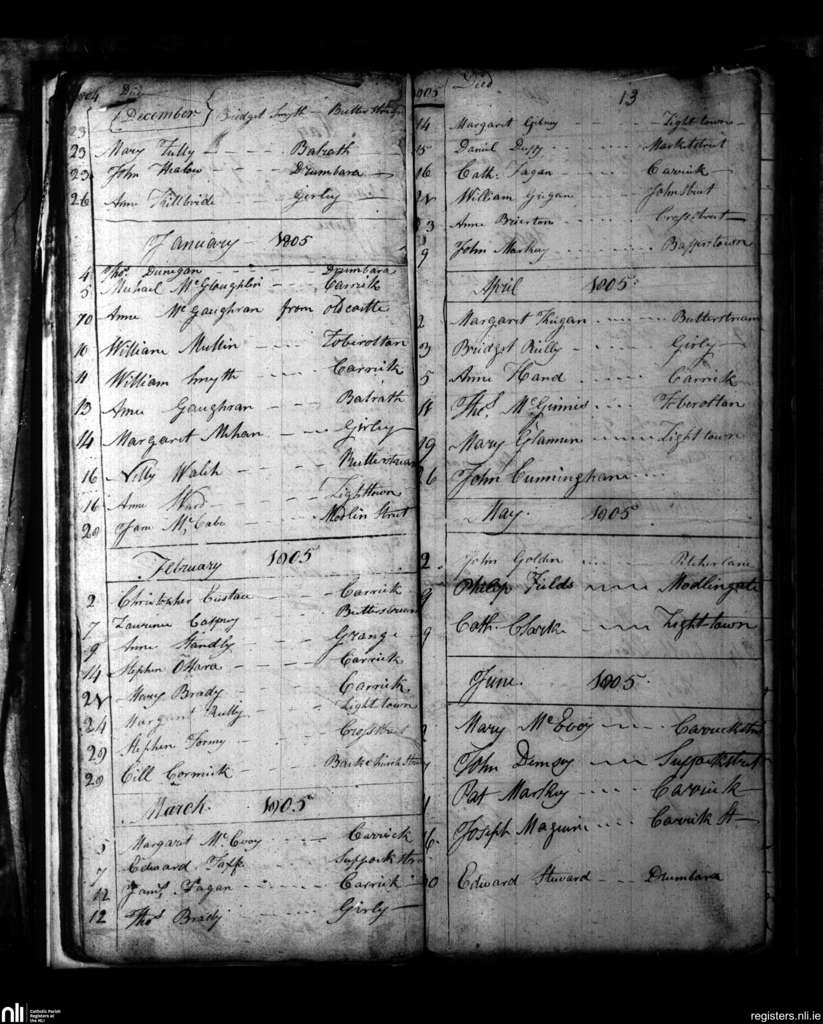 Died
23 December } Bridget Smyth - Butterstream
23 Mary Tully - - - Balrath
23 John - - - Drumbara
26 Anne Killbride - Girley
January 1805
4 Thos. Dunegan - - - Drumbara
5 Michael McGloughlin - Carrick
10 Anne McGaughran from oldcastle
10 William Mullin - - Toberottan
11 William Smyth - - - Carrick
13 Anne Gaughran - - - Balrath
14 Margaret Mehan - - - Girley
16 Nelly Walsh - - - Butterstream
16 Anne Ward - - - Lighttown
20 Jam McCabe - - - Modlin Street
February 1805
2 Christopher Eustace - - Carrick
7 Lawrence - - - Butterstream
9 Anne Standly - - - Grange
14 Stephen O'Hara - - - Carrick
Mary Brady - - - Carrick
24 Margaret Reilly - - - Lighttown
Stephen - - - Crosstreet
Cormick - - - Backchurch Street
March. 1805
5 Margaret McEvoy - - - Carrick
7 Edward Taff - - - Suppock Str
12 Jams. Fagan - - - Carrick
12 Thos. Brady - - - Girly
1805 Died 13
14 Margaret Gibney - - - Lighttown
15 Daniel Duffy - - - Marketstreet
16 Cath. Fagan - - - Carrick
William Grigan - - - Johnstreet
Anne Brierton - - - Crosstreet
John Markey - - -
April 1805
2 Margaret Keegan - - - Butterstream
3 Bridget Reilly - - - Girly
5 Anne Hand - - - Carrick
11 Thos. McGinnis - - - Toberottan
19 Mary - - - Lighttown
26 John Cunningham - - -
May. 1805
2. John Golden - - - Pitcherlane
9 Philip Fields - - - Modlingate
9 Cath. Clark - - - Lighttown
June. 1805.
Mary McEvoy - - - Carrickstreet
John Dempsy - - - Suppockstreet
Pat Markey - - - Carrick
16 Joseph Maguire - - - Carrick St
Edward Steward - - - Drumbara
nli
Catholic Parish
Registers at
the NLI
registers.nli.ie